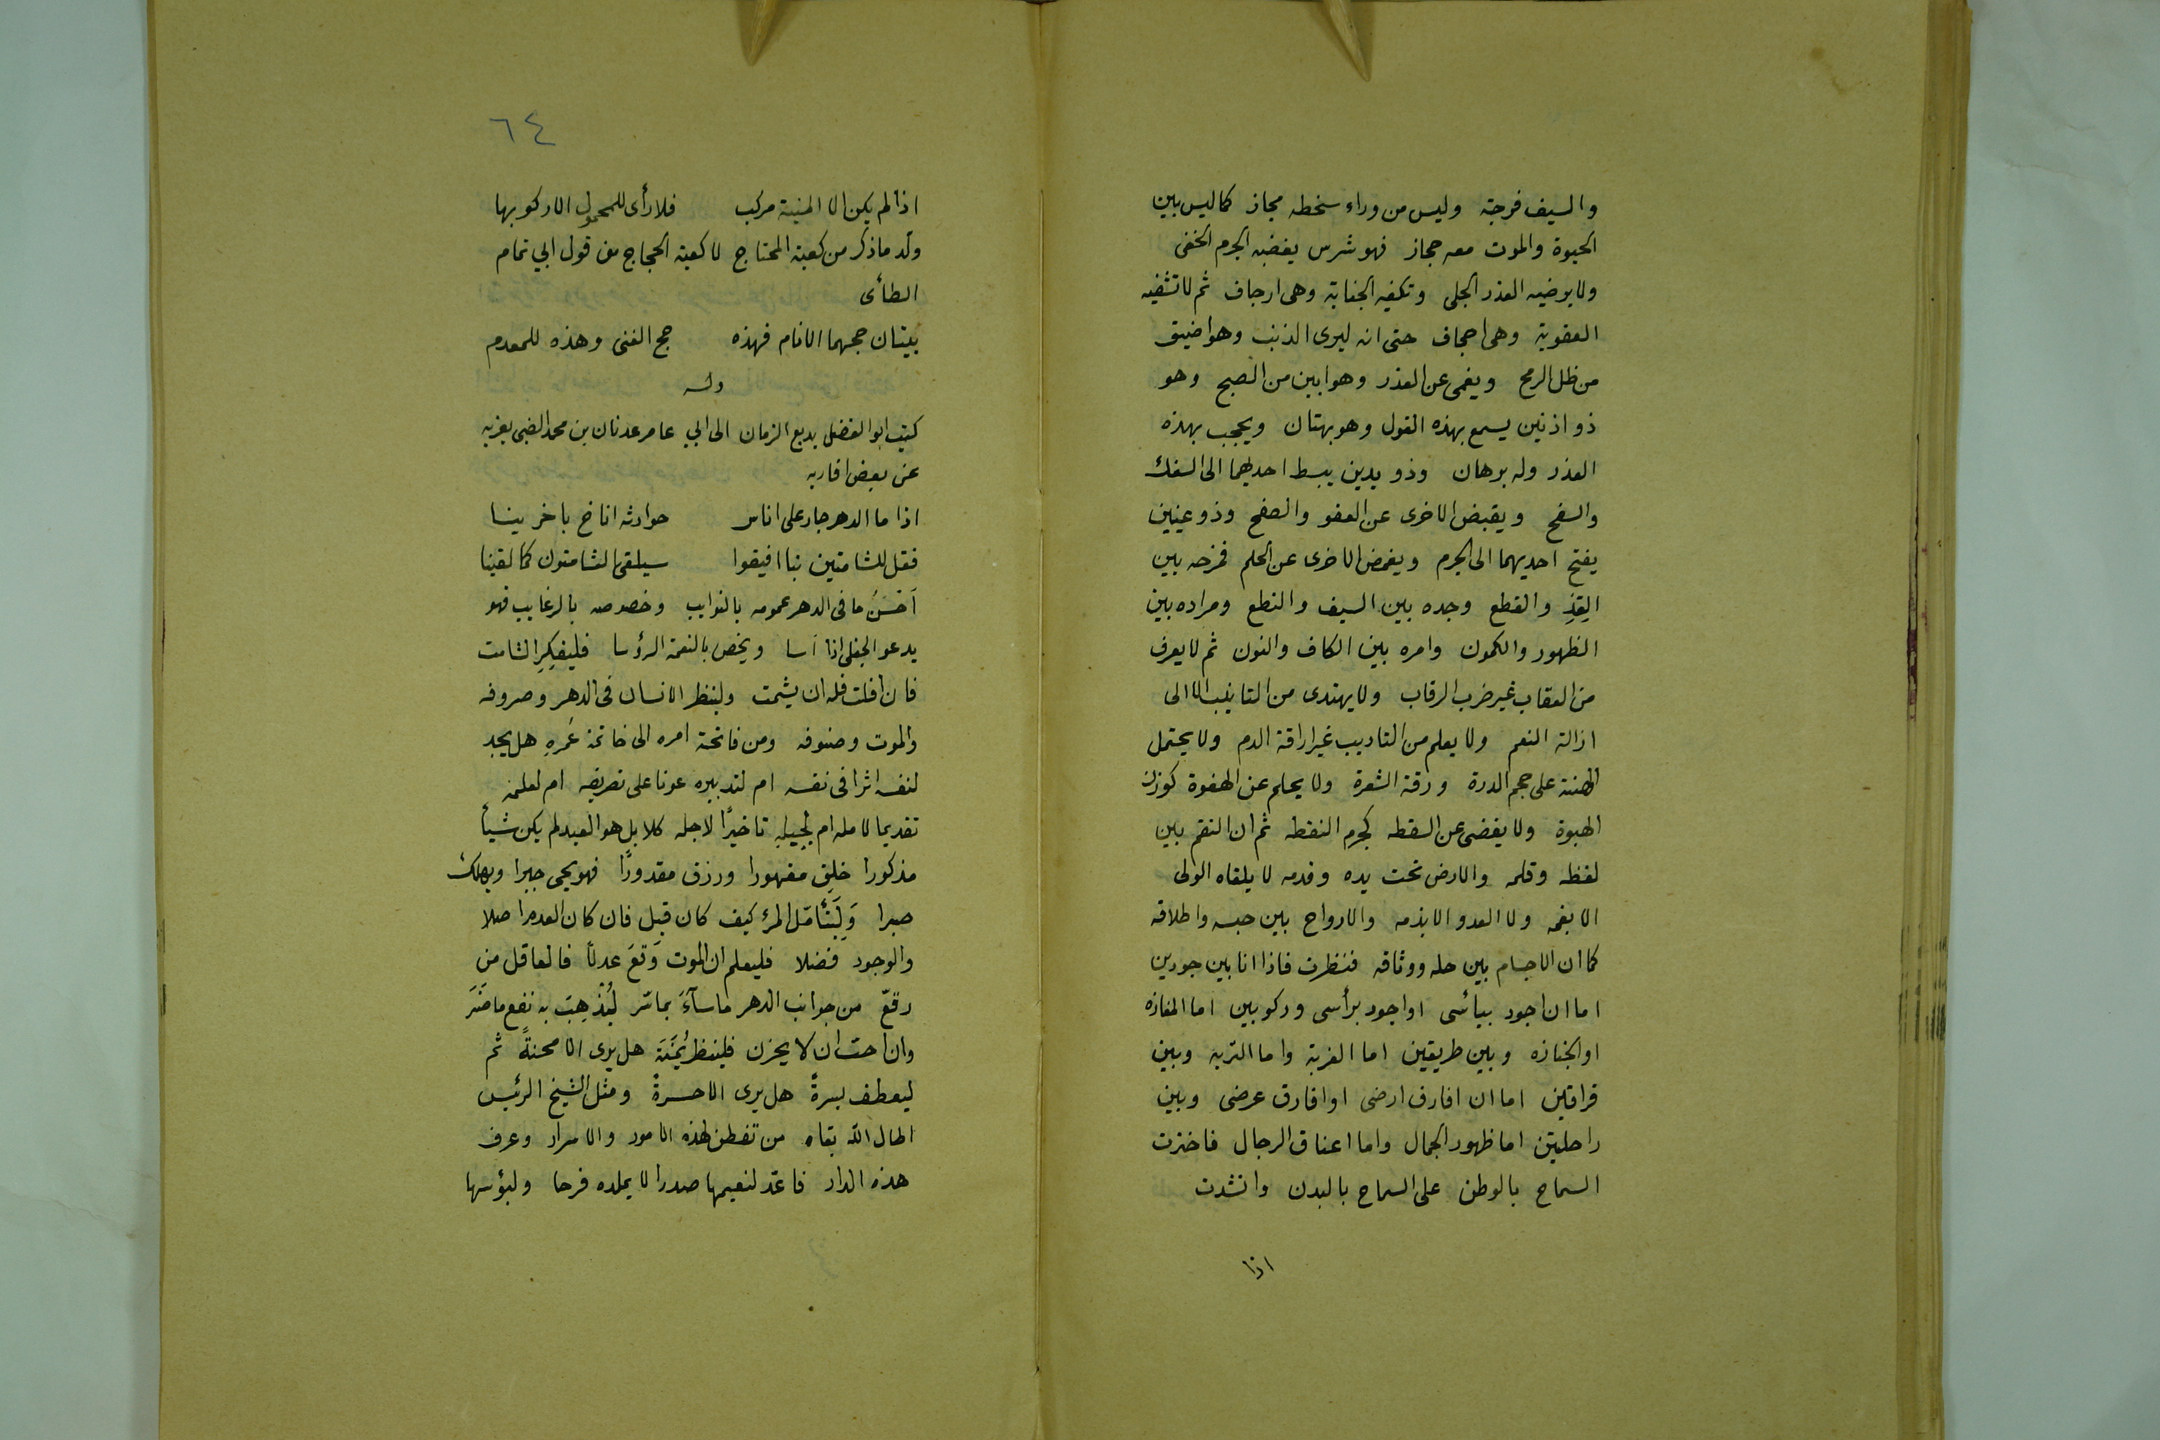 والسيف فرجة وليس من وراء سخطه مجاز كما ليس بين
الحيوة والموت معه حجاز فهو شرس يغضبه الجرم الخفى
ولا يرضيه العذر الجلى وتكفيه الجناية وهى ارجاف ثم لا تشفيه
العقوبة وهى اجحاف حتى انه ليرى الذنب وهو اضيق
من ظل الرمح ويغمى عن العذر وهو ابين من الصبح وهو
ذو اذنين يسمع بهذه القول وهو بهتان ويحجب بهذه
العذر وله برهان وذو يدين يبسط احديهما الى السفك
والسفح ويقبض الاخرى عن العفو والصفح وذو عينين
يفتح احديهما الى الجرم ويغمض الاخرى عن الحلم فمزحه بين
القِدِّ والقطع وجده بين السيف والنطع ومراده بين
الظهور والكمون وامره بين الكاف والنون ثم لا يعرف
من العقاب غير ضرب الرقاب ولا يهتدى من التانيب الا الى
ازالة النعم ولا يعلم من التاديب غير اراقة الدم ولا يحتمل
الهنة على حجم الذرة ورقة الشعرة ولا يحلم عن الهفوة كوزن
الهبوة ولا يغضى عن السقطه كجرم النقطه ثم ان النقم بين
لفظه وقلمه والارض تحت يده وقدمه لا يلقاه الولى
الا بفمه ولا العدو الا بذمه والارواح بين حبسه واطلاقه
كما ان الاجسام بين حله ووثاقه فنظرت فاذا انا بين جودين
اما ان اجود ببائسى او اجود برأسى وركوبين اما المفازه
او الجنازه وبين طريقين اما الغربة واما التربه وبين
فراقين اما ان افارق ارضى او افارق عرضى وبين
راحلتين اما ظهور الجمال واما اعناق الرجال فاخترت
السماح بالوطن على السماح بالبدن وانشدت
اذا
٦٤
اذا لم يكن الا المنية مركب فلا رأى للمحمول الا ركوبها
ولد ما ذكر من كعبة المحتاج لا كعبة الحجاج من قول ابي تمام
الطائى
بيتان حجهما الانام فهذه حج الغنى وهذه للمعدم
وله
كتب ابو الفضل بديع الزمان الى ابي عامر عدنان بن محمد الضبى يعزيه
عن بعض اقاربه
اذا ما الدهر جار على اناس حوادثه اناخ باخرينا
فقل للشامتين بنا افيقوا سيلقى الشامتون كما لقينا
اَحْسَنُ ما فى الدهر عمومه بالنوايب وخصوصه بالرغايب فهو
يدعو الجفلى اذا اسا ويخص بالنعمة الرؤسا فليفكِر الشامت
فان افلت فله ان يشمت ولينظر الانسان فى الدهر وصروفه
والموت وصنوفه ومن فاتحة امره الى خاتمة عُمرهِ هل يجد
لنفسه اثرا فى نفسه ام لتدبيره عونا على تصريفه ام لعلمه
تقديما لامله ام لحِيله تاخيرًا لاجله كلا بل هو العبد لم يكن شيأ
مذكورا خلِق مقهورا ورزق مقدورًا فهو يحيى جبرا ويهلك
صبرا وَلِيَتأمّل المرء كيف كان قبل فان كان العدم اصلا
والوجود فضلا فليعلم ان الموت وَقعَ عدلًا فالعاقل من
رقّع من جوانب الدهر ما ساءَ بما سّر ليُذْهِبَ به نفع ما ضَرَ
وان احبّ ان لا يحزن فلينظر يُمنَةَ هل يرى الا محنةً ثم
ليعطف يسرةً هل يرى الا حسرةً ومثل الشيخ الرئيس
اطال الله بقاه من تفطن لهذه الامور والاسرار وعرف
هذه الدار فاعّد لنعيمها صدرا لا يملده فرحا ولبؤسها